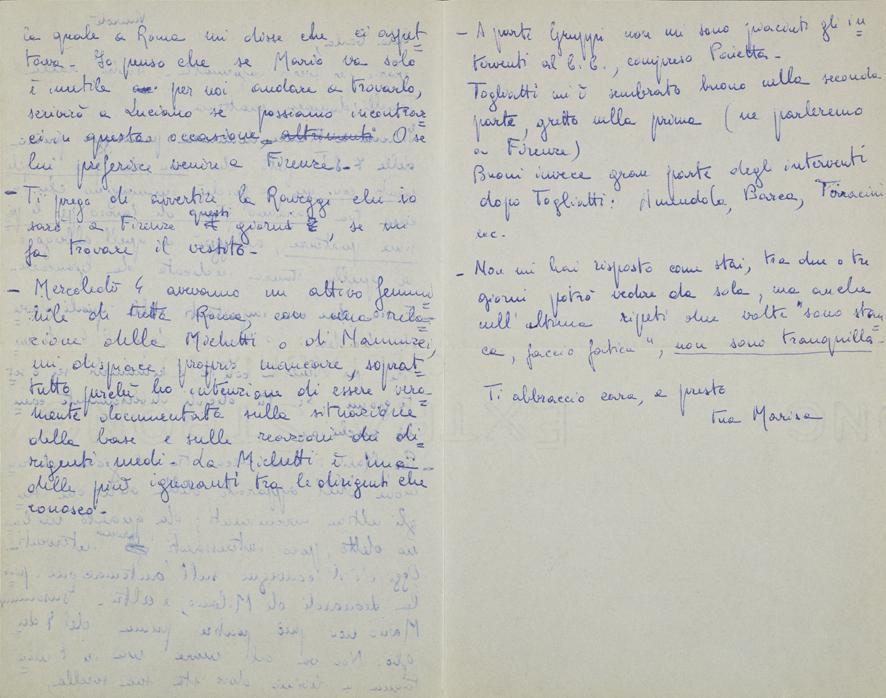 la quale a Roma mi disse che ci aspet=
tava - Io penso che se Mario va solo
è inutile per noi andare a trovarlo,
scriverò a Luciano se possiamo incontrar=
ci in questa occasione, altrimenti O se
lui preferisce venire a Firenze. -
- Ti prego di avvertire la Raveggi che io
sarò a Firenze questi giorni, se mi
fa trovare il vestito -
- Mercoledì 4 avevamo un attivo femmi=
nile di tutta Roma, con una rela=
zione della Michetti o di Nannuzzi,
mi dispiace proprio mancare, soprat=
tutto perché ho intenzione di essere vera=
mente documentata sulla situazione
della base e sulle reazioni dei di=
rigenti medi - La Michetti è una
delle più ignoranti tra le dirigenti che
conosco -
- A parte Gruppi non mi sono piaciuti gli in=
terventi al C.C., compreso Paietta -
Togliatti mi è sembrato buono nella seconda
parte, gretto nella prima (ne parleremo
a Firenze)
Buoni invece gran parte degli interventi
dopo Togliatti: Amendola, Barca, Terracini
ecc.
- Non mi hai risposto come stai, tra due o tre
giorni potrò vedere da sola, ma anche
nell'ultima ripeti due volte "sono stan=
ca, faccio fatica", non sono tranquilla -
Ti abbraccio cara, a presto
tua Marisa